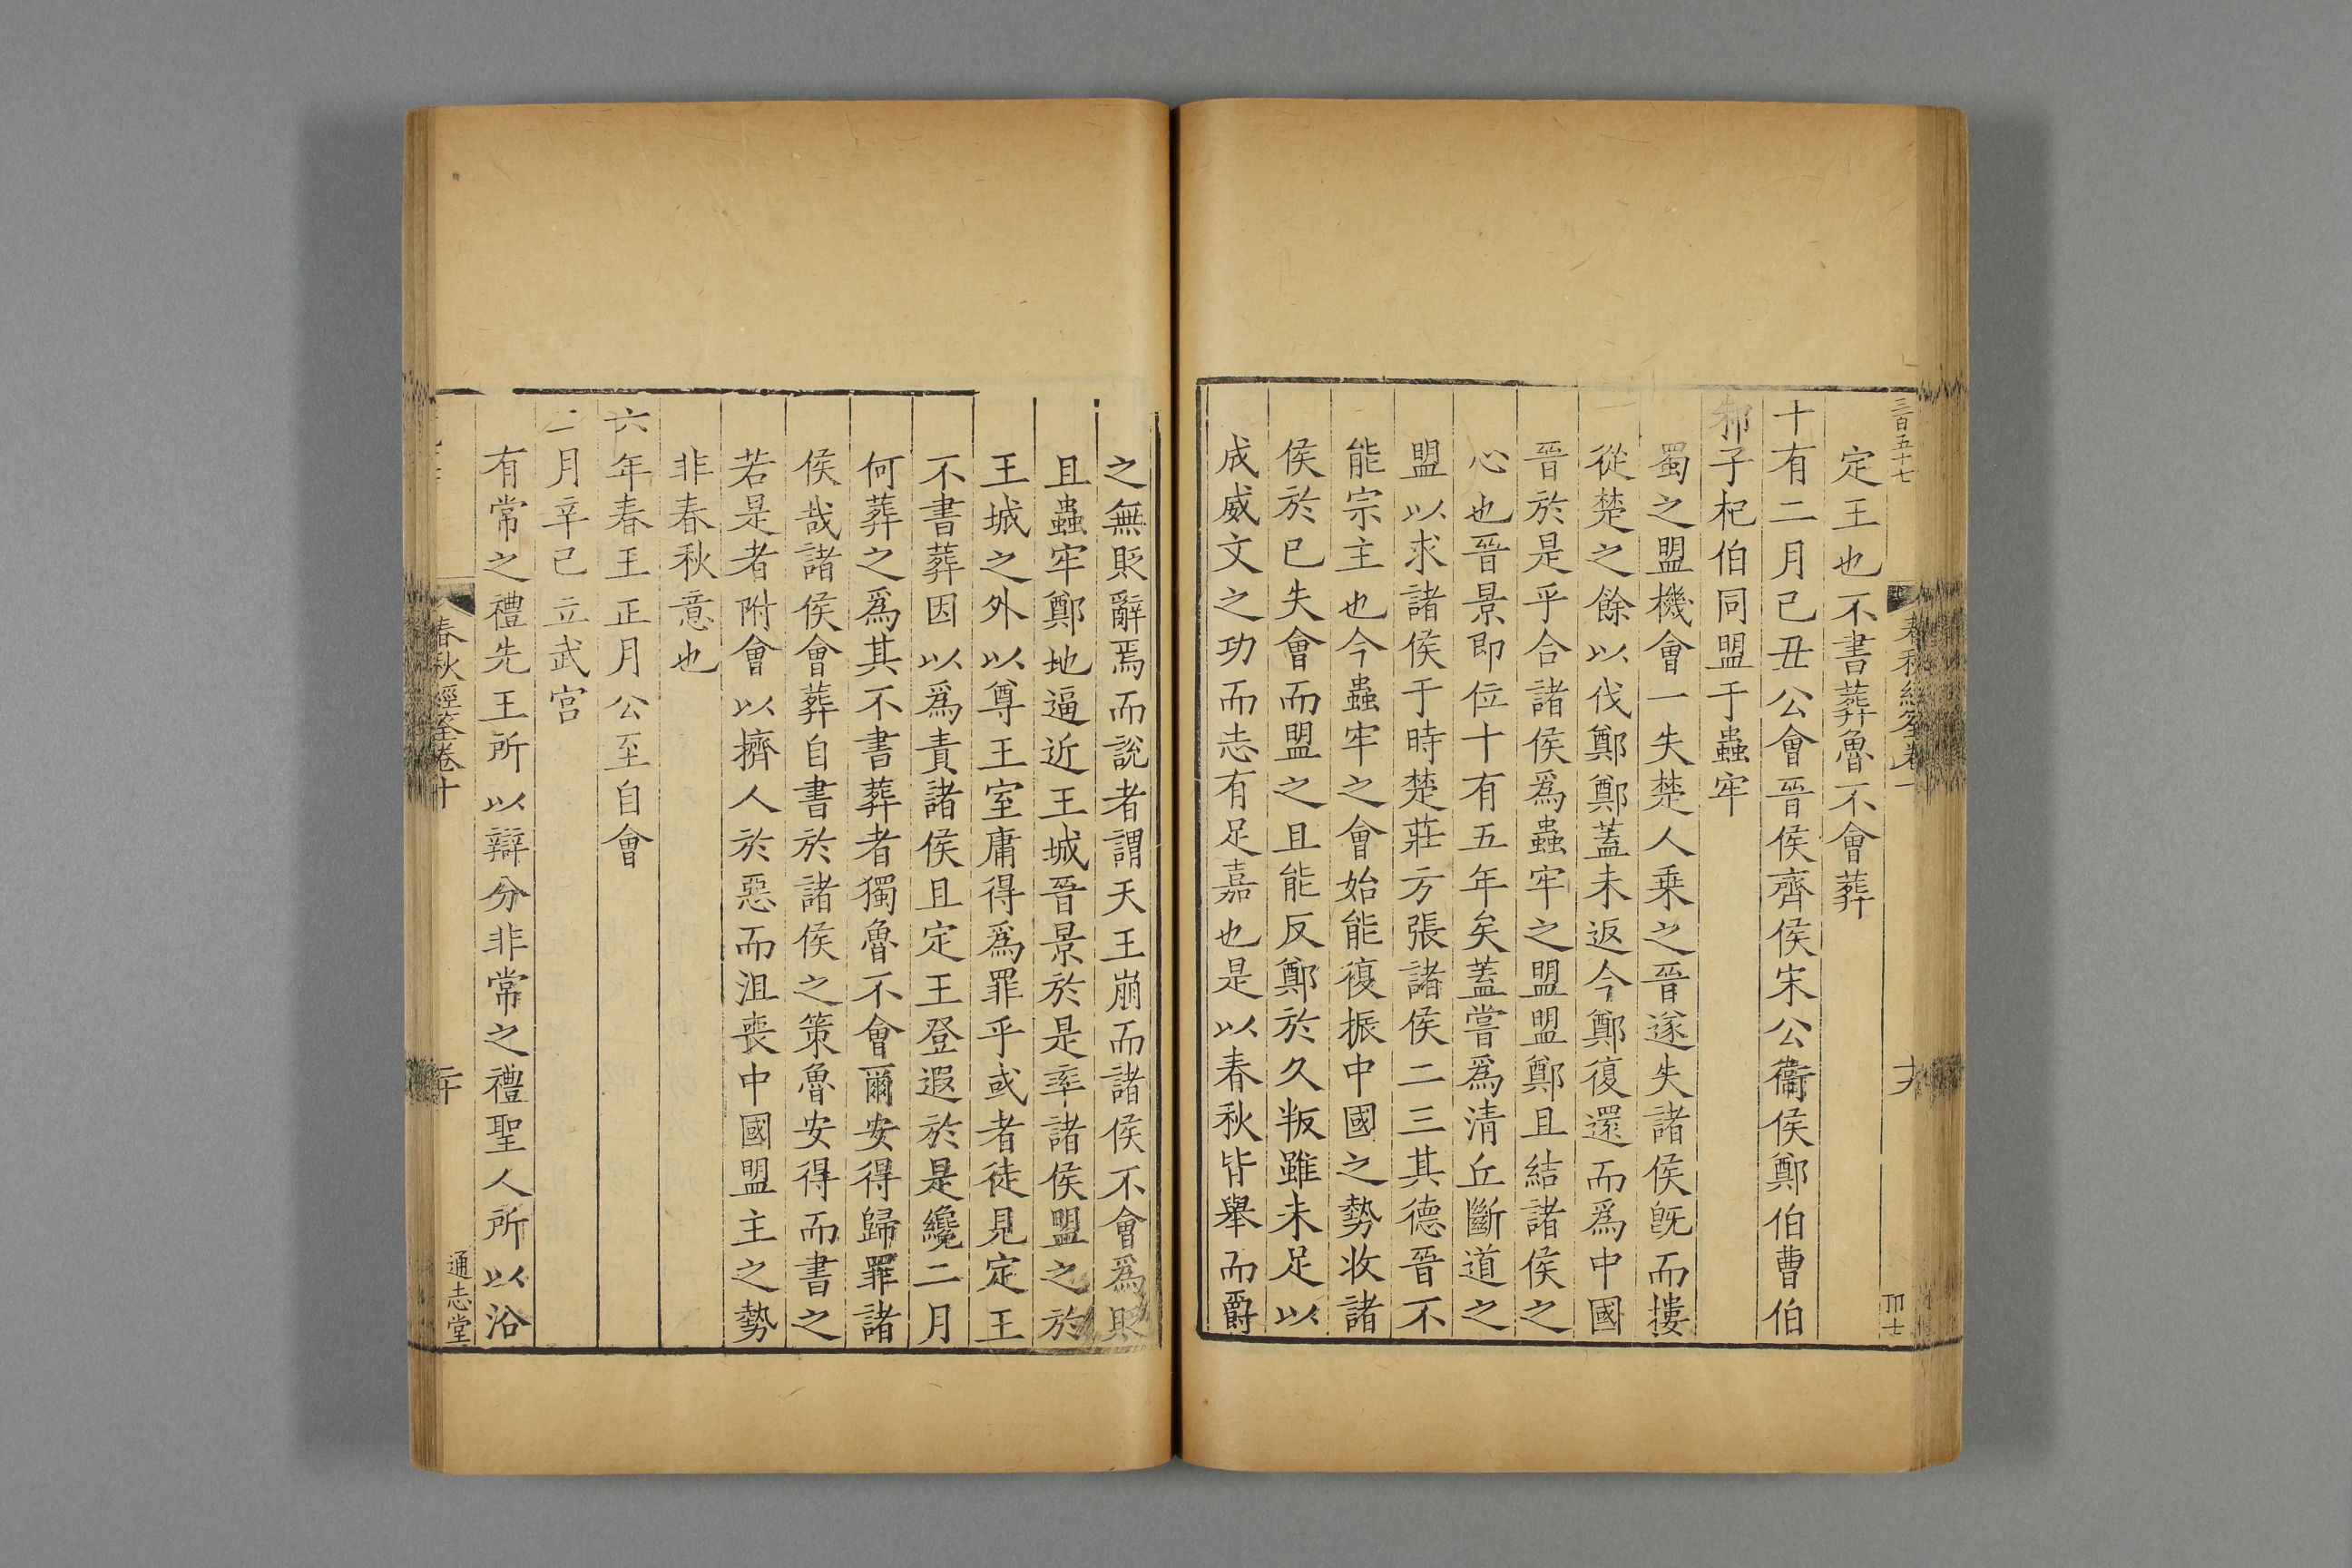 三百五十七
定王也不書葬魯不會葬
十有二月己丑公會晉侯齊侯宋公衞侯鄭伯曹伯
邾子杞伯同盟于蟲牢
蜀之盟機會一失楚人乗之晉遂失諸侯旣而摟
從楚之餘以伐鄭鄭蓋未返今鄭復還而爲中國
晉於是乎合諸侯爲蟲牢之盟盟鄭且結諸侯之
心也晉景即位十有五年矣蓋嘗爲清丘斷道之
盟以求諸侯于時楚莊方張諸侯二三其德晉不
能宗主也今蟲牢之會始能復振中國之勢收諸
侯於已失會而盟之且能反鄭於久叛雖未足以
成威文之功而志有足嘉也是以春秋皆舉而爵
之無貶辭焉而說者謂天王崩而諸侯不會爲貶
且蟲牢鄭地逼近王城晉景於是率諸侯盟之於
王城之外以尊王室庸得爲罪乎或者徒見定王
不書葬因以爲責諸侯且定王登遐於是纔二月
何葬之爲其不書葬者獨魯不會爾安得歸罪諸
侯哉諸侯會葬自書於諸侯之策魯安得而書之
若是者附會以擠人於惡而沮喪中國盟主之勢
非春秋意也
六年春王正月公至自會
二月辛巳立武宮
有常之禮先王所以辯分非常之禮聖人所以沿
春秋經筌卷十
二十
通志堂